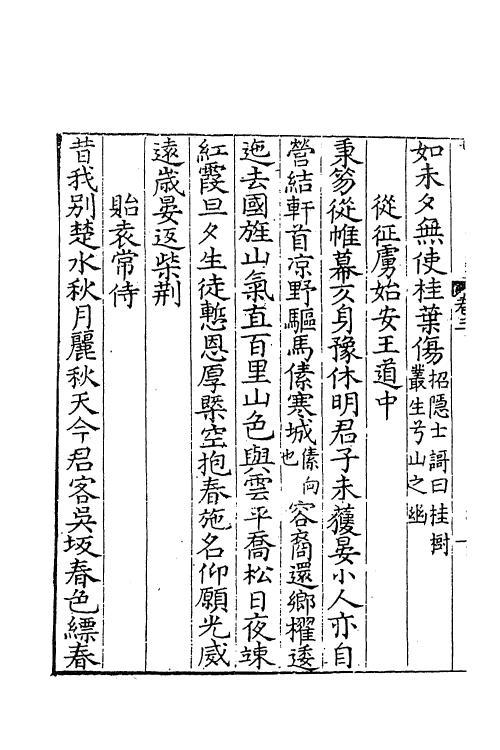 如未夕無使桂葉傷招隱士謌曰桂樹叢生兮山之幽
從征虜始安王道中
秉笏從帷幕身豫休明君子未獲晏小人亦自
營結軒首凉野驅馬傃寒城傃向也容裔還鄉櫂逶
迤去國旌山氣直百里山色與雲平喬松日夜竦
紅霞旦夕生徒慙恩厚槩空抱春施名仰願光威
遠歲晏返柴荆
貽袁常侍
昔我別楚水秋月麗秋天今君客吳坂春色縹春